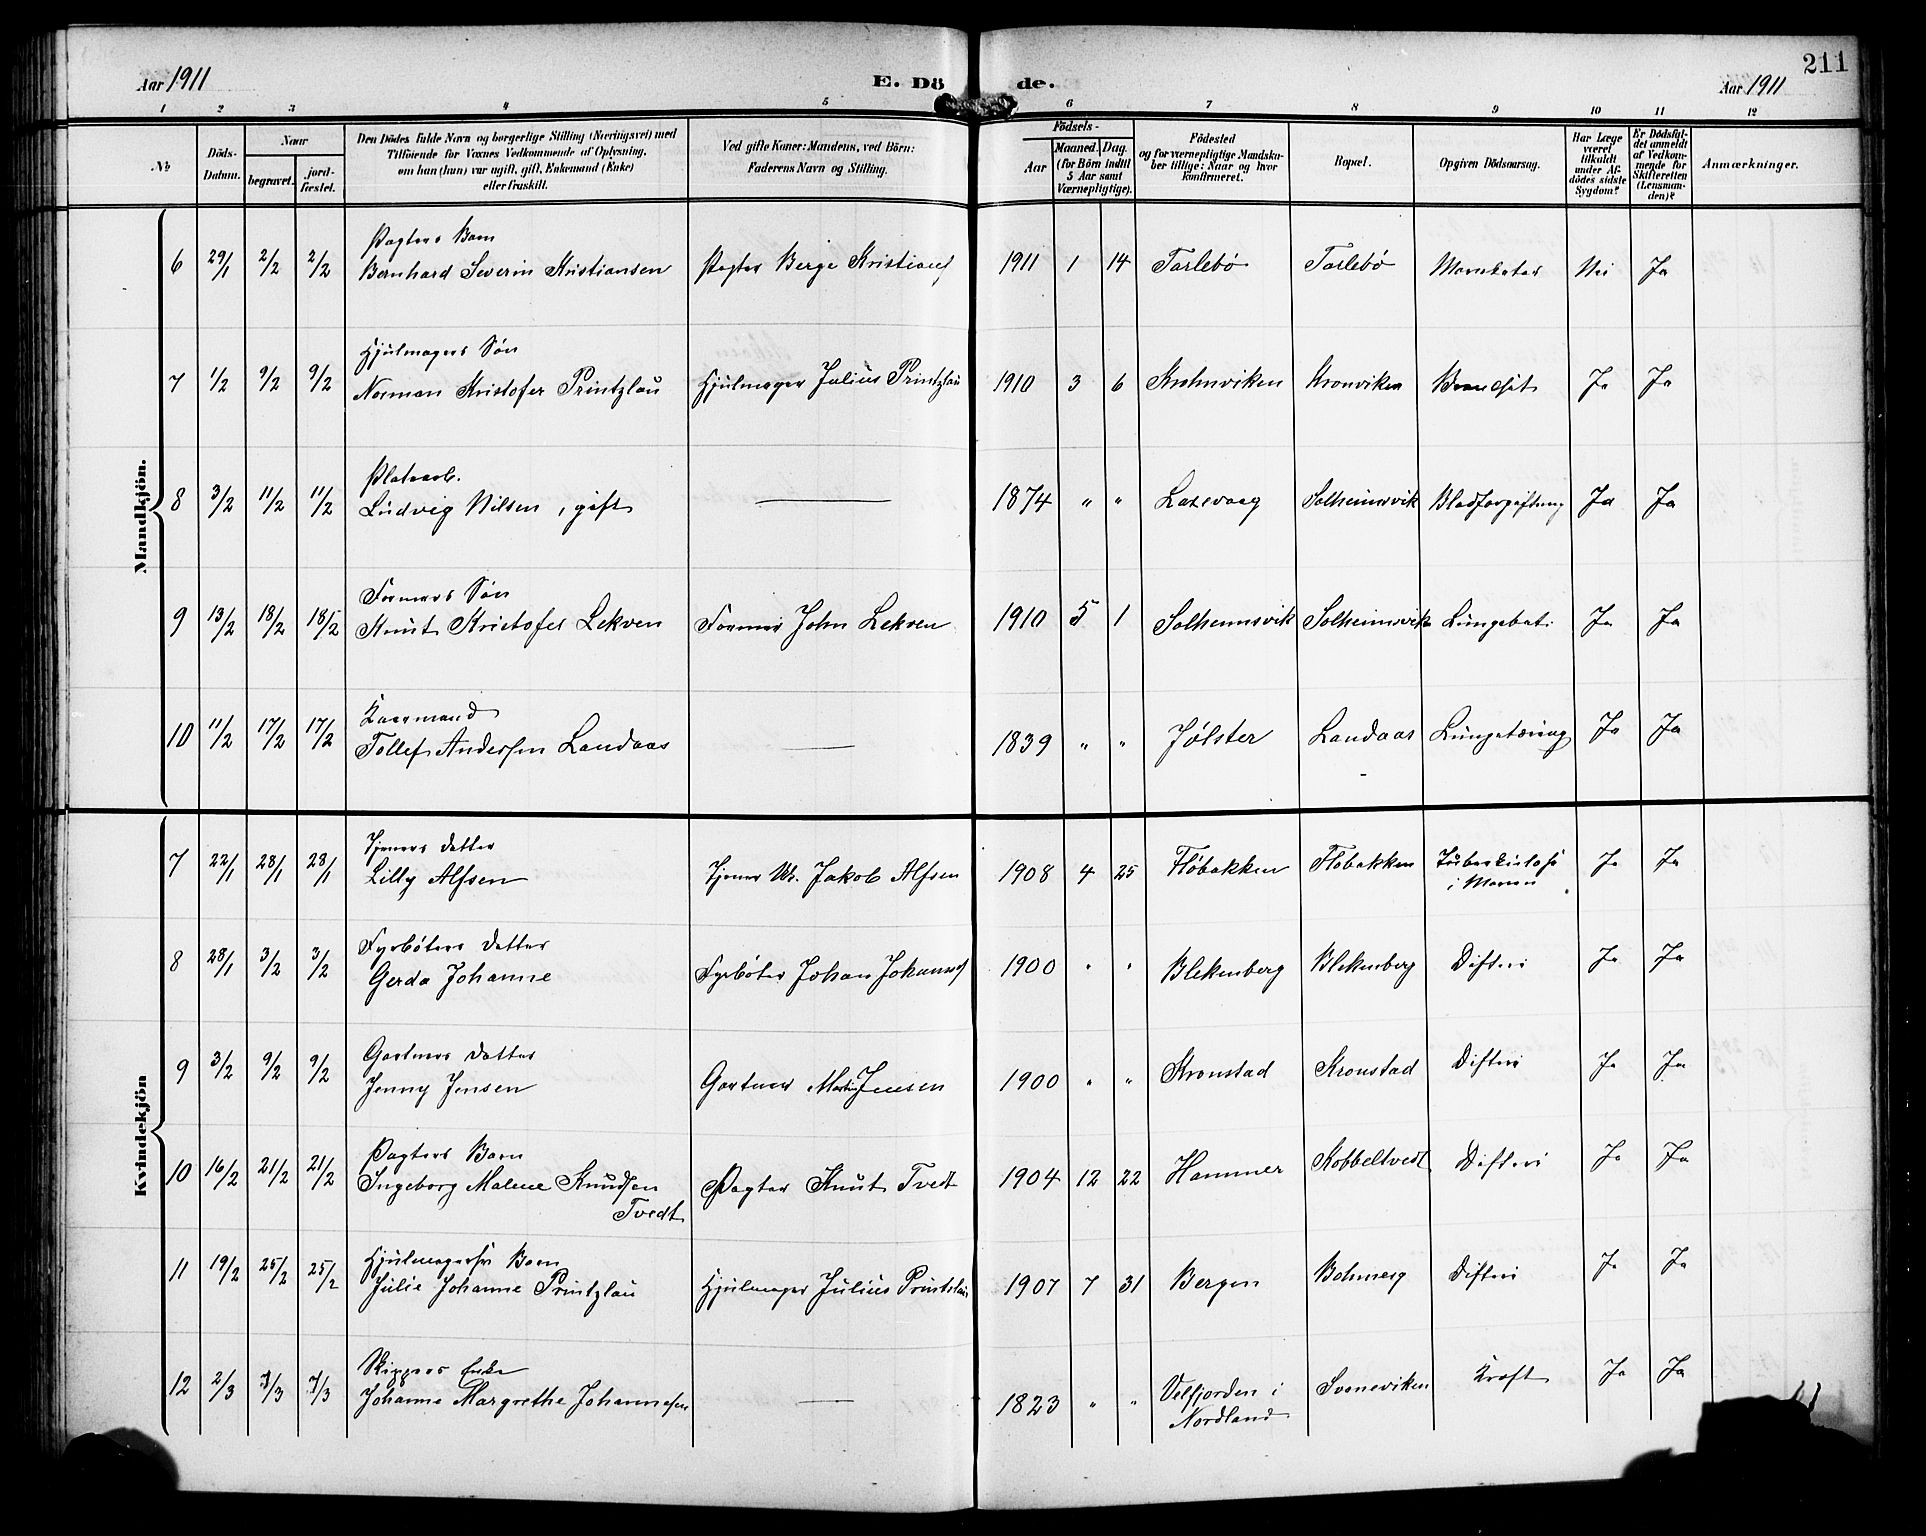 211
Aar 1911
E. Dö de.
Aar 1911
1 2 3 4 5 6 7 8 9 10 11 12
No
Döds-Datum.
Naar
begravet.
jord-fæstet.
Den Dödes fulde Navn og borgerlige Stilling (Næringsvei) med
Tilföiende for Voxnes Vedkommende af Oplysning,
om han (hun) var ugift, gift, Enkemand (Enke)
eller fraskilt.
Ved gifte Koner: Mandens, ved Börn:
Faderens Navn og Stilling.
Födsels-
Aar
Maaned. Dag.
(for Börn indtil
5 Aar samt
Værnepligtige).
Födested
og for værnepligtige Mandska-
ber tillige: Naar og hvor
konfirmeret.
Bopæl.
Opgiven Dödsaarsag.
Har Læge
været
tilkaldt
under Af-
dödes sidste
Sygdom?
Er Dödsfal-
det anmeldt
af Vedkom-
mende for
Skifteretten
(Lensman-
den)?
Anmærkninger.
Mandkjön.
Pagters Barn
6 29/1 2/2 2/2 Bernhard Severin Kristiansen Pagter Berge Kristians 1911 1 14 Tarlebö Tarlebö Nei Ja
Hjulmagers Sön
7 1/2 9/2 9/2 Norman Kristofer Printzlau Hjulmager Julius Printzlau 1910 3 6 Krohnviken Kronviken Ja Ja
Platearb.
8 3/2 11/2 11/2 Ludvig Nilsen, gift — 1874 " " Laxevaag Solheimsvik Blodforgiftning Ja Ja
Formers Sön
9 13/2 18/2 18/2 Knut Kristofer Lekven Former John Lekven 1910 5 1 Solheimsvik Solheimsvik Lungebet. Ja Ja
Kaarmand
10 11/2 17/2 17/2 Tollef Andersen Landaas — 1839 " " Jølster Landaas Lungetæring Ja Ja
Kvindekjön
Tjeners Datter
7 22/1 28/1 28/1 Lilly Alfsen Tjener Jakob Alfsen 1908 4 25 Fløbakken Fløbakken Tuberkulose
i Maven Ja Ja
Fyrbøters Datter
8 28/1 3/2 3/2 Gerda Johanne Fyrbøter Johan Johannes 1900 " " Blekenberg Blekenberg Difteri Ja Ja
Gartners Datter
9 3/2 9/2 9/2 Jenny Jensen Gartner Martin Jensen 1900 " " Kronstad Kronstad Difteri Ja Ja
Pagters Barn
10 16/2 21/2 21/2 Ingeborg Malene Knudsen
Tvedt Pagter Knut Tvedt 1904 12 22 Hammer Kobbeltvedt Difteri Ja Ja
Hjulmagers Barn
11 19/2 25/2 25/2 Julie Johanne Printzlau Hjulmager Julius Printzlau 1907 7 31 Bergen Difteri Ja Ja
Skippers Enke
12 2/3 7/3 7/3 Johanne Margrethe Johannesen — 1823 " " Velfjorden i
Nordland Svaneviken Kræft Ja Ja